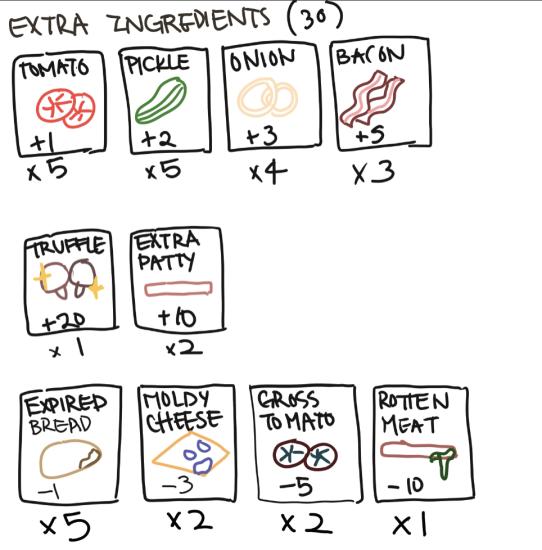 EXTRA INGREDIENTS (30)
TOMATO
+1
x5
PICKLE
+2
x5
ONION
+3
x4
BACON
+5
x3
TRUFFLE
+20
x1
EXTRA
PATTY
+10
x2
EXPIRED
BREAD
-1
x5
MOLDY
CHEESE
-3
x2
GROSS
TOMATO
-5
x2
ROTTEN
MEAT
-10
x1